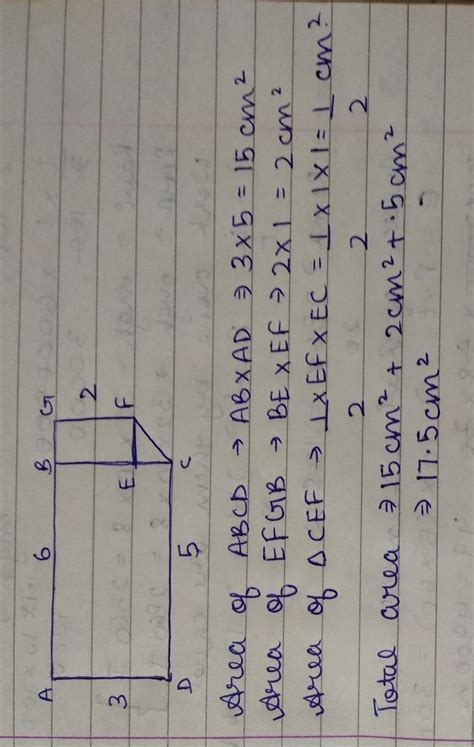 A 6 B G
3 2
E F
D 5 C
Area of ABCD → AB×AD ⇒ 3×5 = 15 cm²
Area of EFGB → BE×EF ⇒ 2×1 = 2 cm²
Area of ΔCEF → 1/2 ×EF×EC = 1/2 ×1×1 = 1/2 cm².
Total area ⇒ 15cm² + 2cm² + .5cm²
⇒ 17.5cm²